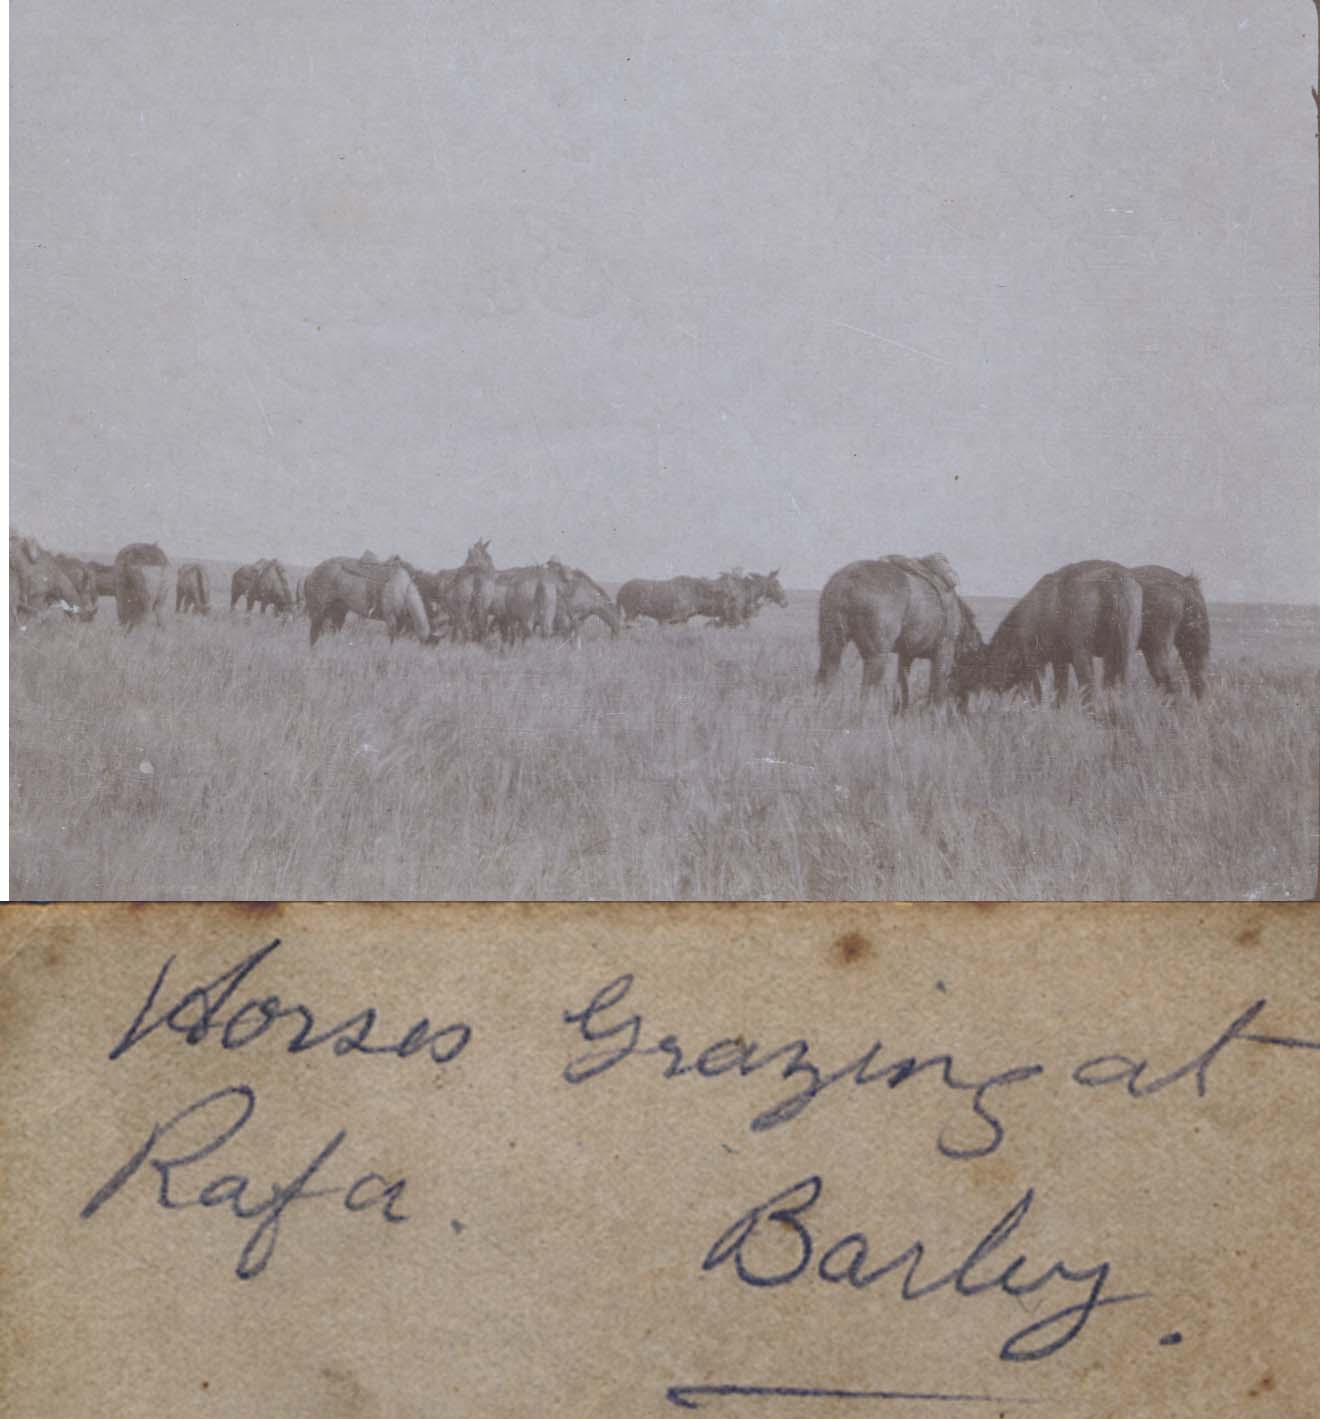 Horses Grazing at
Rafa.
Barley.